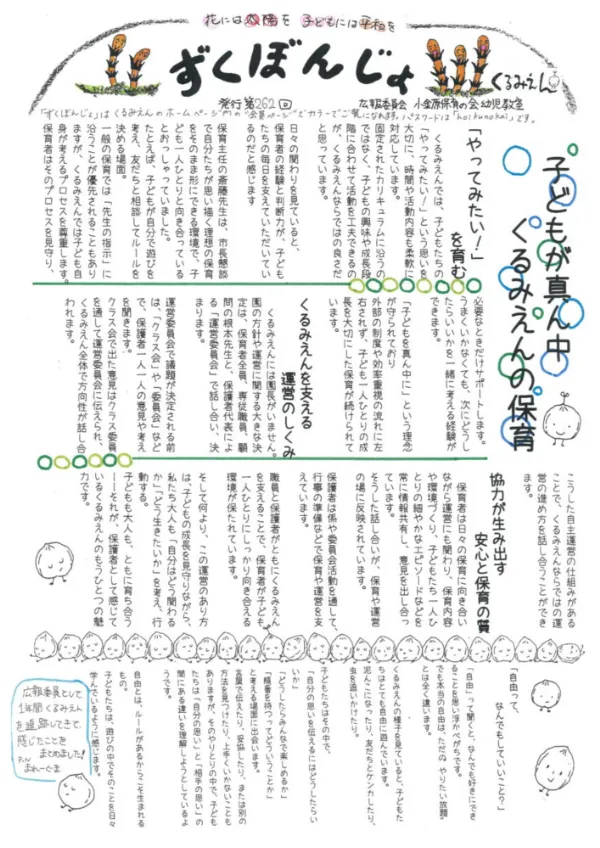 花には太陽を 子どもには平和を
ずくぼんじょ
くるみえん
発行 第262回
広報委員会 小金原保育の会幼児教室
「ずくぼんじょ」は くるみえんの ホームページ内の“会員ページ”で カラーでご覧になれます。パスワードは「hoikunokai」です。
子どもが真ん中
くるみえんの保育
「やってみたい！」
を育む
くるみえんでは、子どもたちの
「やってみたい！」という思いを
大切に、時間や活動内容も柔軟に
対応しています。
固定されたカリキュラムに沿うの
ではなく、子どもの興味や成長段
階に合わせて活動を工夫できるの
が、くるみえんならではの良さだ
と思っています。
日々の関わりを見ていると、
保育者の経験と判断力が、子ども
たちの毎日を支えていただいてい
るのだと感じます。
保育主任の斎藤先生は、市長懇談
で自分たちが思い描く理想の保育
をそのまま形にできる環境で、子
ども一人ひとりと向き合っている
とおっしゃっていました。
たとえば、子どもが自分で遊びを
考え、友だちと相談してルールを
決める場面。
一般の保育では「先生の指示」に
沿うことが優先されることもあり
ますが、くるみえんでは子ども自
身が考えるプロセスを尊重します。
保育者はそのプロセスを見守り、
必要なときだけサポートします。
うまくいかなくても、次にどうし
たらいいかを一緒に考える経験が
できます。
「子どもを真ん中に」という理念
が守られており
外部の制度や効率重視の流れに左
右されず、子ども一人ひとりの成
長を大切にした保育が続けられて
います。
くるみえんを支える
運営のしくみ
くるみえんには園長がいません。
園の方針や運営に関する大きな決
定は、保育者全員、専従職員、顧
問の根本先生と、保護者代表によ
る「運営委員会」で話し合い、決
まります。
運営委員会で議題が決定される前
は、「クラス会」や「委員会」など
で、保護者一人一人の意見や考え
を聞きます。
クラス会で出た意見はクラス委員
を通して運営委員会に伝えられ、
くるみえん全体で方向性が話し合
われます。
こうした自主運営の仕組みがある
ことで、くるみえんならではの運
営の進め方を話し合うことができ
ます。
協力が生み出す
安心と保育の質
保育者は日々の保育に向き合い
ながら運営にも関わり、保育内容
や環境づくり、子どもたち一人ひ
とりの細やかなエピソードなどを
常に情報共有し、意見を出し合っ
ています。
そうした話し合いが、保育や運営
の場に反映されています。
保護者は係や委員会活動を通して、
行事の準備などで保育や運営を支
えています。
職員と保護者がともにくるみえん
を支えることで、保育者が子ども
一人ひとりにしっかり向き合える
環境が保たれています。
そして何より、この運営のあり方
は、子どもの成長を見守りながら、
私たち大人も「自分はどう関わる
か」「どう生きたいか」を考え、行
動する。
子どもも大人も、ともに育ち合う
——それが、保護者として感じて
いるくるみえんのもうひとつの魅
力です。
「自由って、
なんでもしていいこと？」
「自由」って聞くと、なんでも好きにでき
ることを思い浮かべがちです。
でも本当の自由は、ただの〝やりたい放題〟
とは全く違います。
くるみえんの様子を見ていると、子どもた
ちはとても自由に遊んでいます。
泥んこになったり、友だちとケンカしたり、
虫を追いかけたり。
子どもたちはその中で、
「自分の思いを伝えるにはどうしたらい
いか」
「どうしたらみんなで楽しめるか」
「順番を待つってどういうことか」
と考える場面に出会います。
言葉で伝えたり、妥協したり、または別の
方法を見つけたり。上手くいかないことも
ありますが、そのやりとりの中で、子ども
たちは「自分の思い」と「相手の思い」の
間にある違いを理解しようとしているよ
うです。
自由とは、ルールがあるからこそ生まれる
もの。
子どもたちは、遊びの中でそのことを日々
学んでいるように感じます。
広報委員として
1年間 くるみえん
を追跡してきて、
感じたことを
まとめました!
P.N
まれーぐま